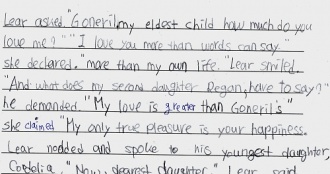 Lear asked, "Goneril, my eldest child how much do you
love me?" "I love you more than words can say"
she declared. "more than my own life." Lear smiled.
"And what does my second daughter Regan, have to say?"
he demanded. "My love is greater than Goneril's"
she claimed "My only true pleasure is your happiness.
Lear nodded and spoke to his youngest daughter,
Cordelia. "Now, dearest daughter," Lear said